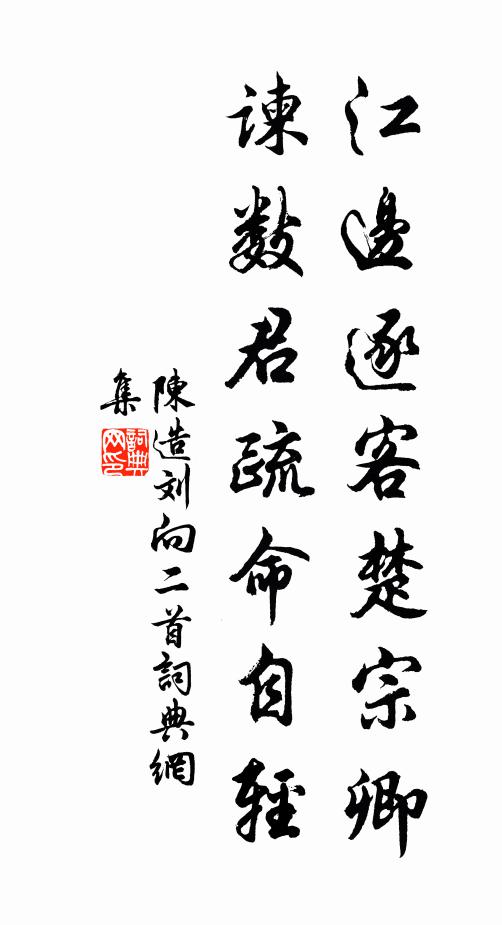 江邊逐客楚宗卿
諫数君疏命自輕
陳造刘向二首詞典網
集
詞典
网印